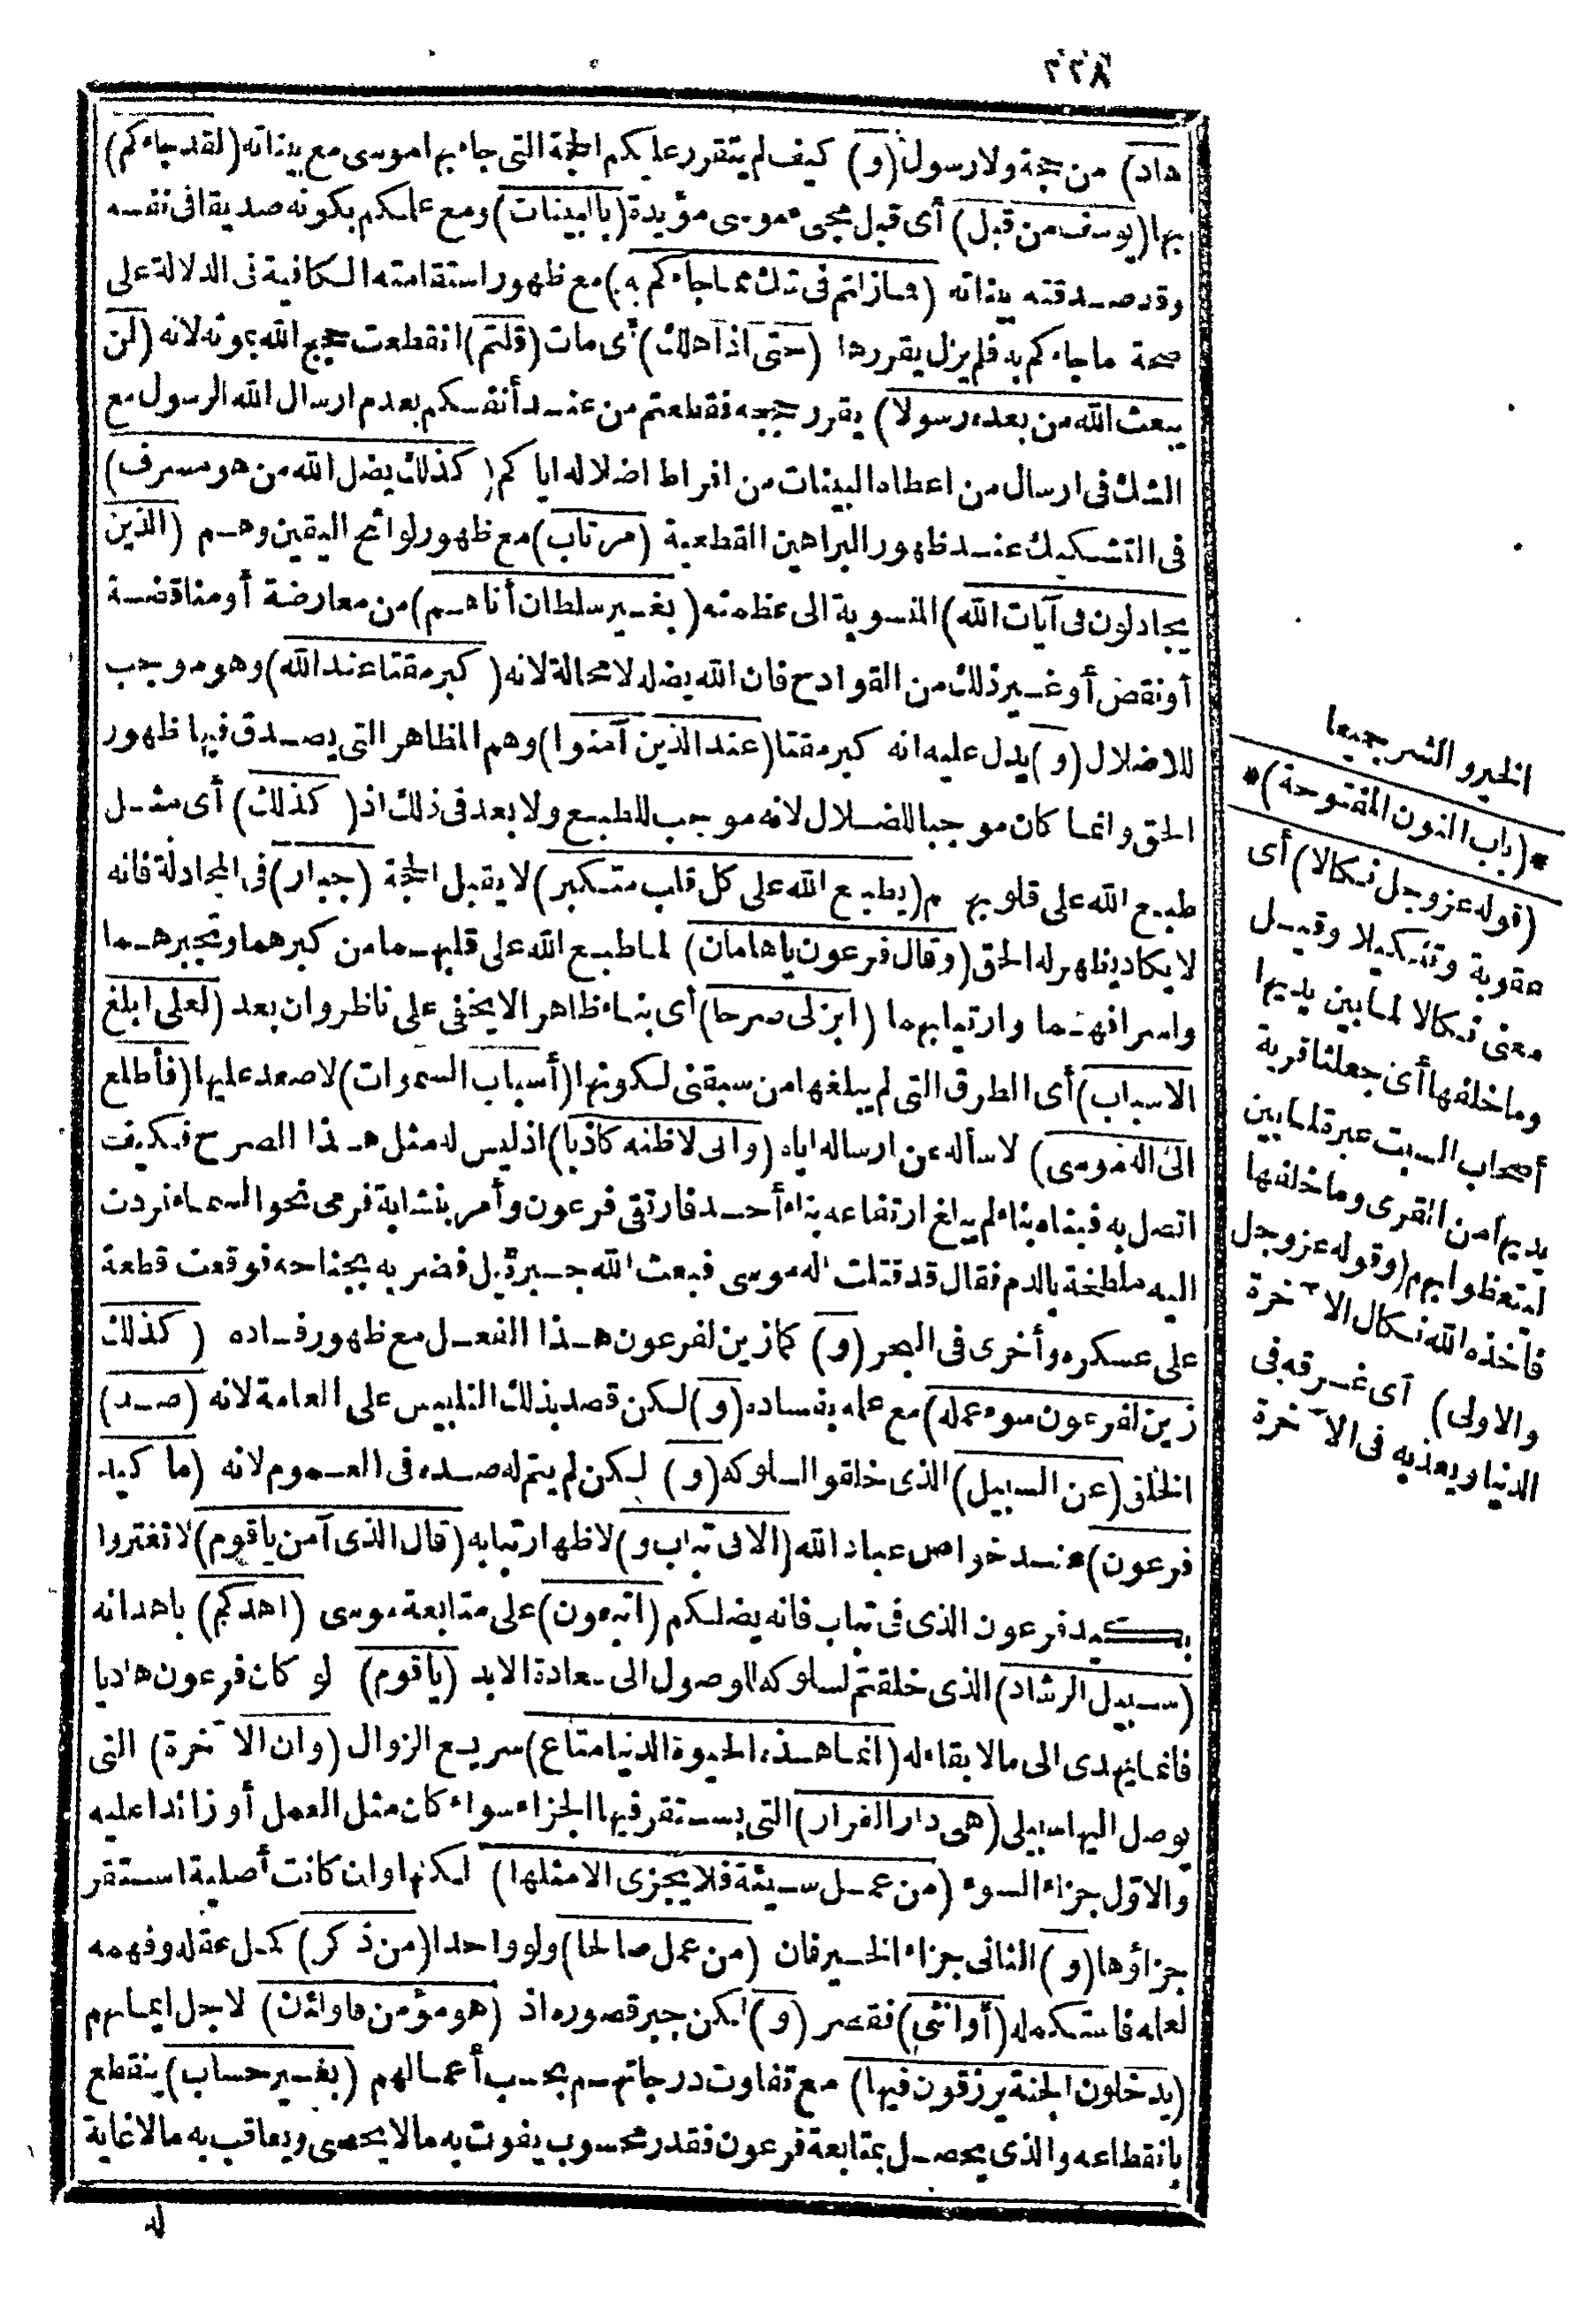 ٢٢٨
هاد) من حجة ولا رسول (و) كيف لم يتقرر عليكم الحجة التي جاء بها موسى مع بيناته (لقد جاءكم)
بها (يوسف من قبل) أى قبل مجىء موسى مؤيدة (بالبينات) ومع علمكم بكونه صديقا فى نفسه
وقد صدقته بيناته (فما زلتم فى شك مما جاءكم به) مع ظهور استقامته الكافية فى الدلالة على
صحة ما جاءكم به فلم يزل يقررها (حتى اذا هلك) أى مات (قلتم) انقطعت حجج الله بموته لانه (لن
يبعث الله من بعده رسولا) يقرر حججه فقطعتم من عند أنفسكم بعدم ارسال الله الرسول مع
الشك فى ارسال من اعطاه البينات من افراط اضلاله اياكم (كذلك يضل الله من هو مسرف)
فى التشكيك عند ظهور البراهين القطعية (مرتاب) مع ظهور لوائح اليقين وهم (الذين
يجادلون فى آيات الله) المنسوبة الى عظمته (بغير سلطان أتاهم) من معارضة أو مناقضة
أو نقض أو غير ذلك من القوادح فان الله يضله لا محالة لانه (كبر مقتا عند الله) وهو موجب
للاضلال (و) يدل عليه انه كبر مقتا (عند الذين آمنوا) وهم المظاهر التى يصدق فيها ظهور
الحق وانما كان موجبا للضلال لانه موجب للطبع ولا بعد فى ذلك اذ (كذلك) أى مثل
طبع الله على قلوبهم (يطبع الله على كل قلب متكبر) لا يقبل الحجة (جبار) فى المجادلة فانه
لا يكاد يظهر له الحق (وقال فرعون ياهامان) لما طبع الله على قلبهما من كبرهما وتجبرهما
واسرافهما وارتيابهما (ابن لى صرحا) أى بناء ظاهرا لا يخفى على ناظر وان بعد (لعلى ابلغ
الاسباب) أى الطرق التى لم يبلغها من سبقنى لكونها (أسباب السموات) لاصعد عليها (فأطلع
الى اله موسى) لاسأله عن ارساله اياه (وانى لاظنه كاذبا) اذ ليس له مثل هذا الصرح فكيف
اتصل به فبناه بناء لم يبلغ ارتفاعه بناء أحد فارتقى فرعون وأمر بنشابة فرمى نحو السماء فردت
اليه ملطخة بالدم فقال قد قتلت اله موسى فبعث الله جبريل فضربه بجناحه فوقعت قطعة
على عسكره وأخرى فى البحر (و) كما زين لفرعون هذا الفعل مع ظهور فساده (كذلك
زين لفرعون سوء عمله) مع علمه بفساده (و) لكن قصد بذلك التلبيس على العامة لانه (صد)
الخلق (عن السبيل) الذى خلقوا لسلوكه (و) لكن لم يتم له صده فى العموم لانه (ما كيد
فرعون) عند خواص عباد الله (الا فى تباب و) لاظهار تبابه (قال الذى آمن ياقوم) لا تغتروا
بكيد فرعون الذى فى تباب فانه يضلكم (اتبعون) على متابعة موسى (اهدكم) باهدائه
(سبيل الرشاد) الذى خلقتم لسلوكه الوصول الى سعادة الابد (ياقوم) لو كان فرعون هاديا
فانما يهدى الى مالا بقاء له (انما هذه الحيوة الدنيا متاع) سريع الزوال (وان الآخرة) التى
يوصل اليها سبيلى (هى دار القرار) التى يستقر فيها الجزاء سواء كان مثل العمل أو زائدا عليه
والاول جزاء السوء (من عمل سيئة فلا يجزى الا مثلها) لكنها وان كانت أصلية استقر
جزاؤها (و) الثانى جزاء الخير فان (من عمل صالحا) ولو واحدا (من ذكر) كمل عقله وفهمه
لعله فاستكمله (أو انثى) فقصر (و) لكن جبر قصوره اذ (هو مؤمن فاولئك) لاجل ايمانهم
(يدخلون الجنة يرزقون فيها) مع تفاوت درجاتهم بحسب أعمالهم (بغير حساب) ينقطع
بانقطاعه والذى يحصل بمتابعة فرعون فقدر محسوب يفوت به مالا يحصى ويعاقب به مالا غاية
له
الخير والشر جميعا
*(باب النون المفتوحة)*
(قوله عز وجل نكالا) أى
عقوبة وتنكيلا وقيل
معنى نكالا لما بين يديها
وما خلفها أى جعلنا قرية
أصحاب السبت عبرة لما بين
يديها من القرى وما خلفها
ليتعظوا بهم (وقوله عز وجل
فأخذه الله نكال الآخرة
والاولى) أى غرقه فى
الدنيا ويعذبه فى الآخرة